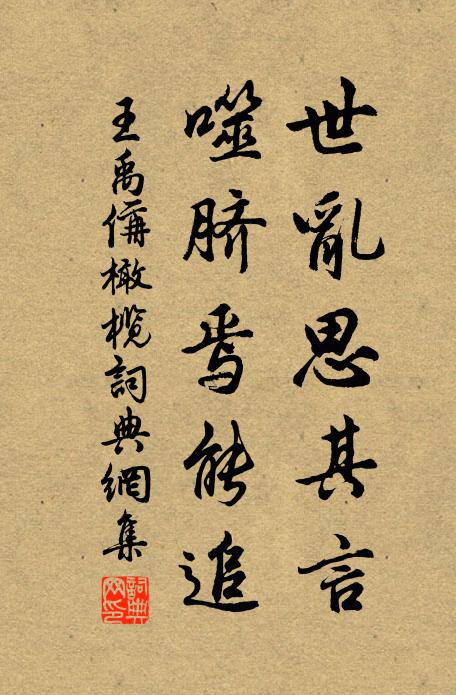 世亂思其言
噬脐焉能追
王禹偁橄榄詞典網集
詞典網印